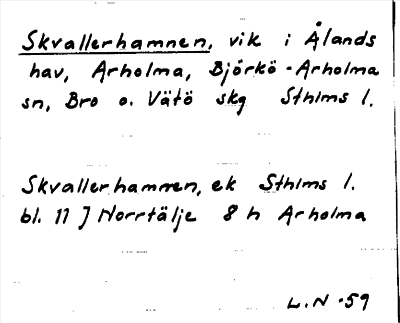 Skvallerhamnen, vik i Ålands
hav, Arholma, Björkö-Arholma
sn, Bro o. Vätö skg Sthlms l.
Skvallerhamnen, ek Sthlms l.
bl. 11 J Norrtälje 8 h Arholma
L.N -59